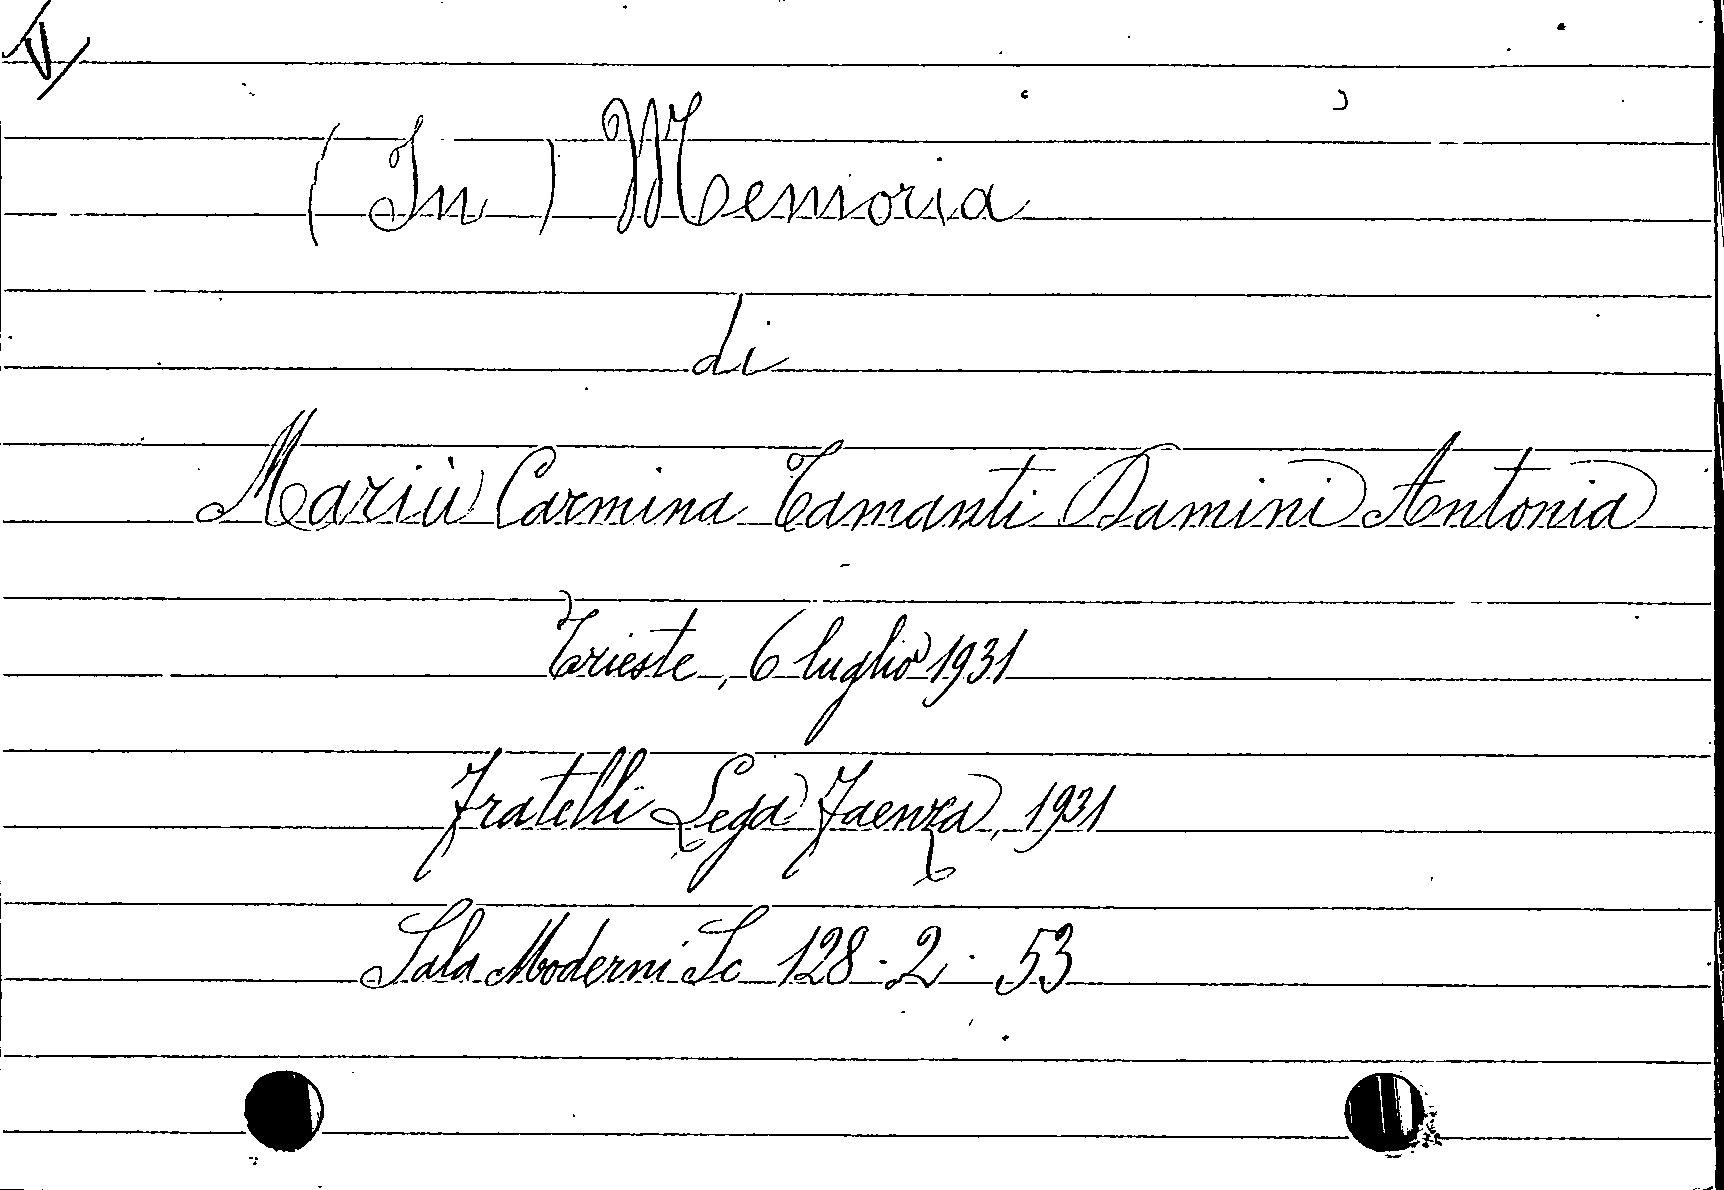 V
(In) Memoria
di
Mariù Carmina Tamanti Damini Antonia
Trieste, 6 luglio 1931
Fratelli Lega Faenza, 1931
Sala Moderni Sc 128 · 2 · 53